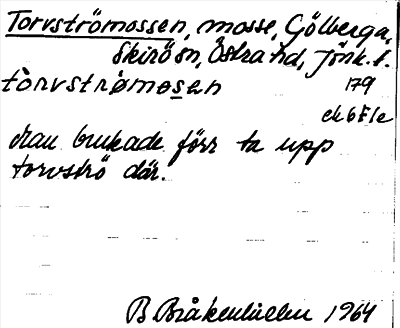 Torvströmossen, mosse, Gölberga,
Skirö sn, Östra hd, Jönk. l.
tòrvstrømòsen 179
ek 6 F 1 e
Man brukade förr ta upp
torvströ där.
B Bråkenhielm 1964